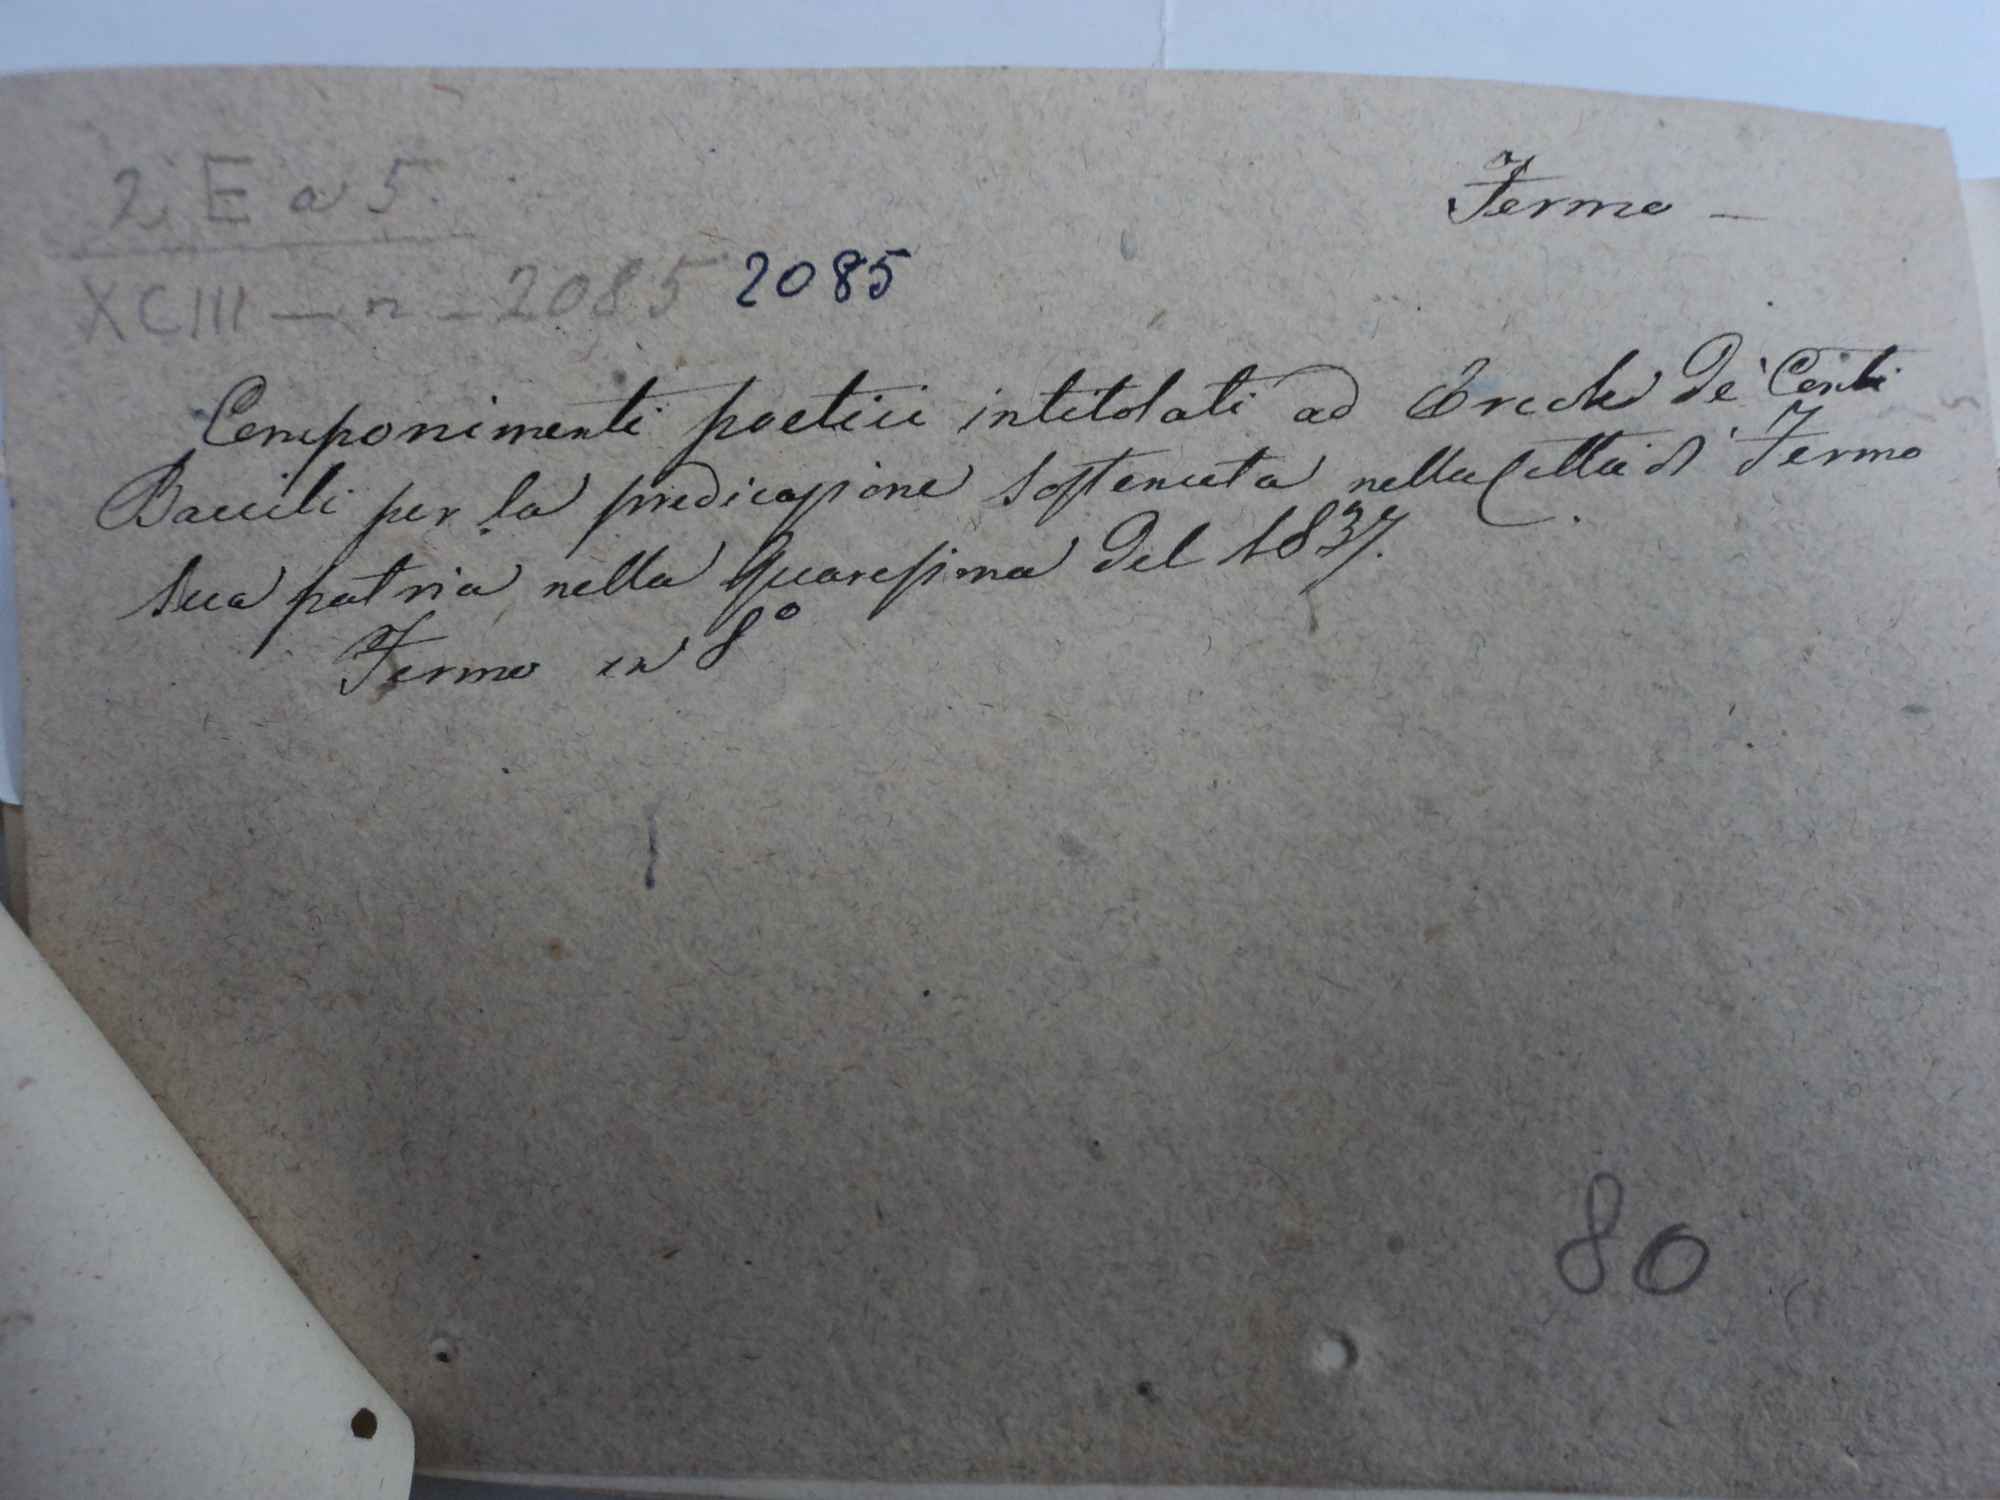 2 E a 5.
Fermo -
XCIII - n - 2085 2085
Componimenti poetici intitolati ad Ercole de' Conti
Baccili per la predicazione sostenuta nella Città di Fermo
sua patria nella Quaresima del 1837.
Fermo in 8°
80